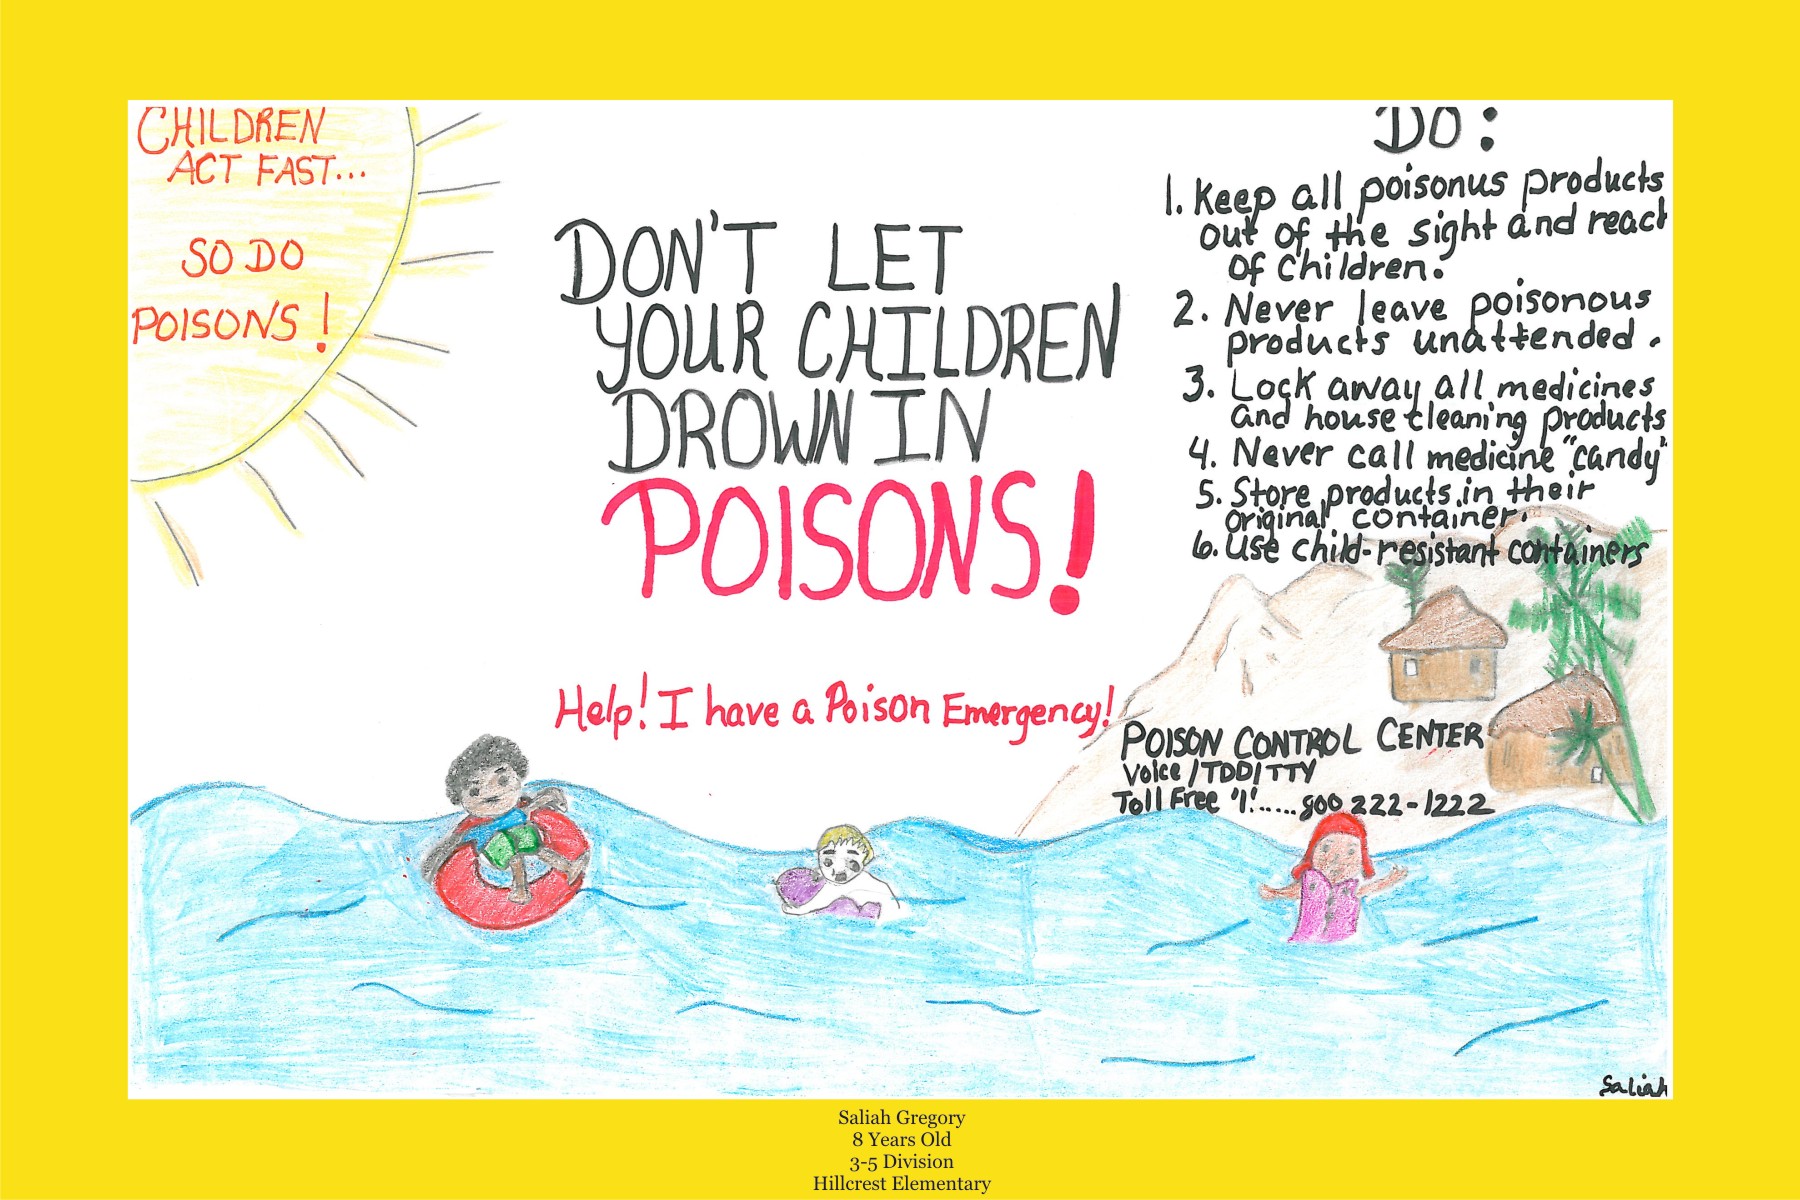 CHILDREN
ACT FAST...
SO DO
POISONS!
DON'T LET
YOUR CHILDREN
DROWN IN
POISONS!
Help! I have a Poison Emergency!
DO:
1. Keep all poisonus products
out of the sight and reach
of children.
2. Never leave poisonous
products unattended.
3. Lock away all medicines
and house cleaning products
4. Never call medicine "candy"
5. Store products in their
original container.
6. Use child-resistant containers
POISON CONTROL CENTER
Voice/TDD/TTY
Toll Free '1'.....800 222-1222
Saliah
Saliah Gregory
8 Years Old
3-5 Division
Hillcrest Elementary